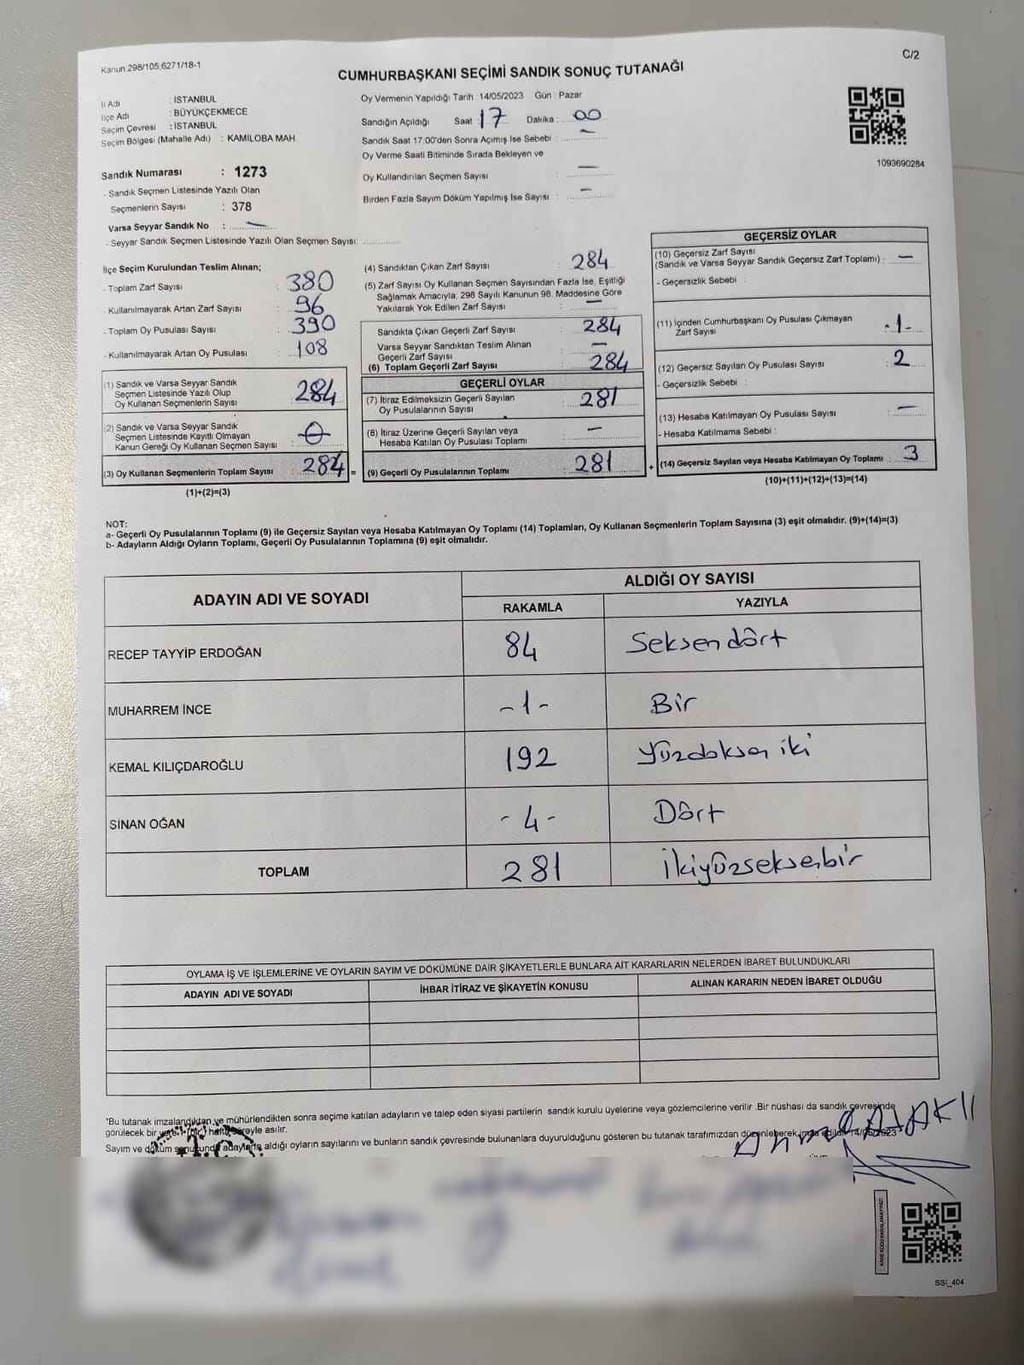 Kanun:298/105,6271/18-1
C/2
CUMHURBAŞKANI SEÇİMİ SANDIK SONUÇ TUTANAĞI
İl Adı : İSTANBUL
İlçe Adı : BÜYÜKÇEKMECE
Seçim Çevresi : İSTANBUL
Seçim Bölgesi (Mahalle Adı) : KAMİLOBA MAH.
Sandık Numarası : 1273
- Sandık Seçmen Listesinde Yazılı Olan
Seçmenlerin Sayısı : 378
Varsa Seyyar Sandık No : —
- Seyyar Sandık Seçmen Listesinde Yazılı Olan Seçmen Sayısı:
Oy Vermenin Yapıldığı Tarih :14/05/2023 Gün : Pazar
Sandığın Açıldığı Saat : 17 Dakika : 00
Sandık Saat 17:00'den Sonra Açımış İse Sebebi : —
Oy Verme Saati Bitiminde Sırada Bekleyen ve
Oy Kullandırılan Seçmen Sayısı : —
Birden Fazla Sayım Döküm Yapılmış İse Sayısı : —
1093690284
İlçe Seçim Kurulundan Teslim Alınan;
- Toplam Zarf Sayısı : 380
- Kullanılmayarak Artan Zarf Sayısı : 96
- Toplam Oy Pusulası Sayısı : 390
- Kullanılmayarak Artan Oy Pusulası : 108
(1) Sandık ve Varsa Seyyar Sandık
Seçmen Listesinde Yazılı Olup
Oy Kullanan Seçmenlerin Sayısı 284
(2) Sandık ve Varsa Seyyar Sandık
Seçmen Listesinde Kayıtlı Olmayan
Kanun Gereği Oy Kullanan Seçmen Sayısı 0
(3) Oy Kullanan Seçmenlerin Toplam Sayısı 284 =
(1)+(2)=(3)
(4) Sandıktan Çıkan Zarf Sayısı 284
(5) Zarf Sayısı Oy Kullanan Seçmen Sayısından Fazla İse, Eşitliği
Sağlamak Amacıyla, 298 Sayılı Kanunun 98. Maddesine Göre
Yakılarak Yok Edilen Zarf Sayısı : —
Sandıkta Çıkan Geçerli Zarf Sayısı : 284
Varsa Seyyar Sandıktan Teslim Alınan
Geçerli Zarf Sayısı : —
(6) Toplam Geçerli Zarf Sayısı : 284
GEÇERLİ OYLAR
(7) İtiraz Edilmeksizin Geçerli Sayılan
Oy Pusulalarının Sayısı : 281
(8) İtiraz Üzerine Geçerli Sayılan veya
Hesaba Katılan Oy Pusulası Toplamı : —
(9) Geçerli Oy Pusulalarının Toplamı : 281 +
GEÇERSİZ OYLAR
(10) Geçersiz Zarf Sayısı
(Sandık ve Varsa Seyyar Sandık Geçersiz Zarf Toplamı) : —
- Geçersizlik Sebebi :
(11) İçinden Cumhurbaşkanı Oy Pusulası Çıkmayan
Zarf Sayısı : -1-
(12) Geçersiz Sayılan Oy Pusulası Sayısı : 2
- Geçersizlik Sebebi :
(13) Hesaba Katılmayan Oy Pusulası Sayısı : —
- Hesaba Katılmama Sebebi :
(14) Geçersiz Sayılan veya Hesaba Katılmayan Oy Toplamı : 3
(10)+(11)+(12)+(13)=(14)
NOT:
a- Geçerli Oy Pusulalarının Toplamı (9) ile Geçersiz Sayılan veya Hesaba Katılmayan Oy Toplamı (14) Toplamları, Oy Kullanan Seçmenlerin Toplam Sayısına (3) eşit olmalıdır. (9)+(14)=(3)
b- Adayların Aldığı Oyların Toplamı, Geçerli Oy Pusulalarının Toplamına (9) eşit olmalıdır.
ADAYIN ADI VE SOYADI
ALDIĞI OY SAYISI
RAKAMLA YAZIYLA
RECEP TAYYİP ERDOĞAN 84 Seksen dört
MUHARREM İNCE -1- Bir
KEMAL KILIÇDAROĞLU 192 Yüzdoksan iki
SİNAN OĞAN -4- Dört
TOPLAM 281 İkiyüzseksenbir
OYLAMA İŞ VE İŞLEMLERİNE VE OYLARIN SAYIM VE DÖKÜMÜNE DAİR ŞİKAYETLERLE BUNLARA AİT KARARLARIN NELERDEN İBARET BULUNDUKLARI
ADAYIN ADI VE SOYADI İHBAR İTİRAZ VE ŞİKAYETİN KONUSU ALINAN KARARIN NEDEN İBARET OLDUĞU
*Bu tutanak imzalandıktan ve mühürlendikten sonra seçime katılan adayların ve talep eden siyasi partilerin sandık kurulu üyelerine veya gözlemcilerine verilir .Bir nüshası da sandık çevresinde
görülecek bir yere asılır.
Sayım ve döküm sonucunda adayların aldığı oyların sayılarını ve bunların sandık çevresinde bulunanlara duyurulduğunu gösteren bu tutanak tarafımızdan düzenlenerek imza edildi. 14/05/2023
T.C.
SSİ_404